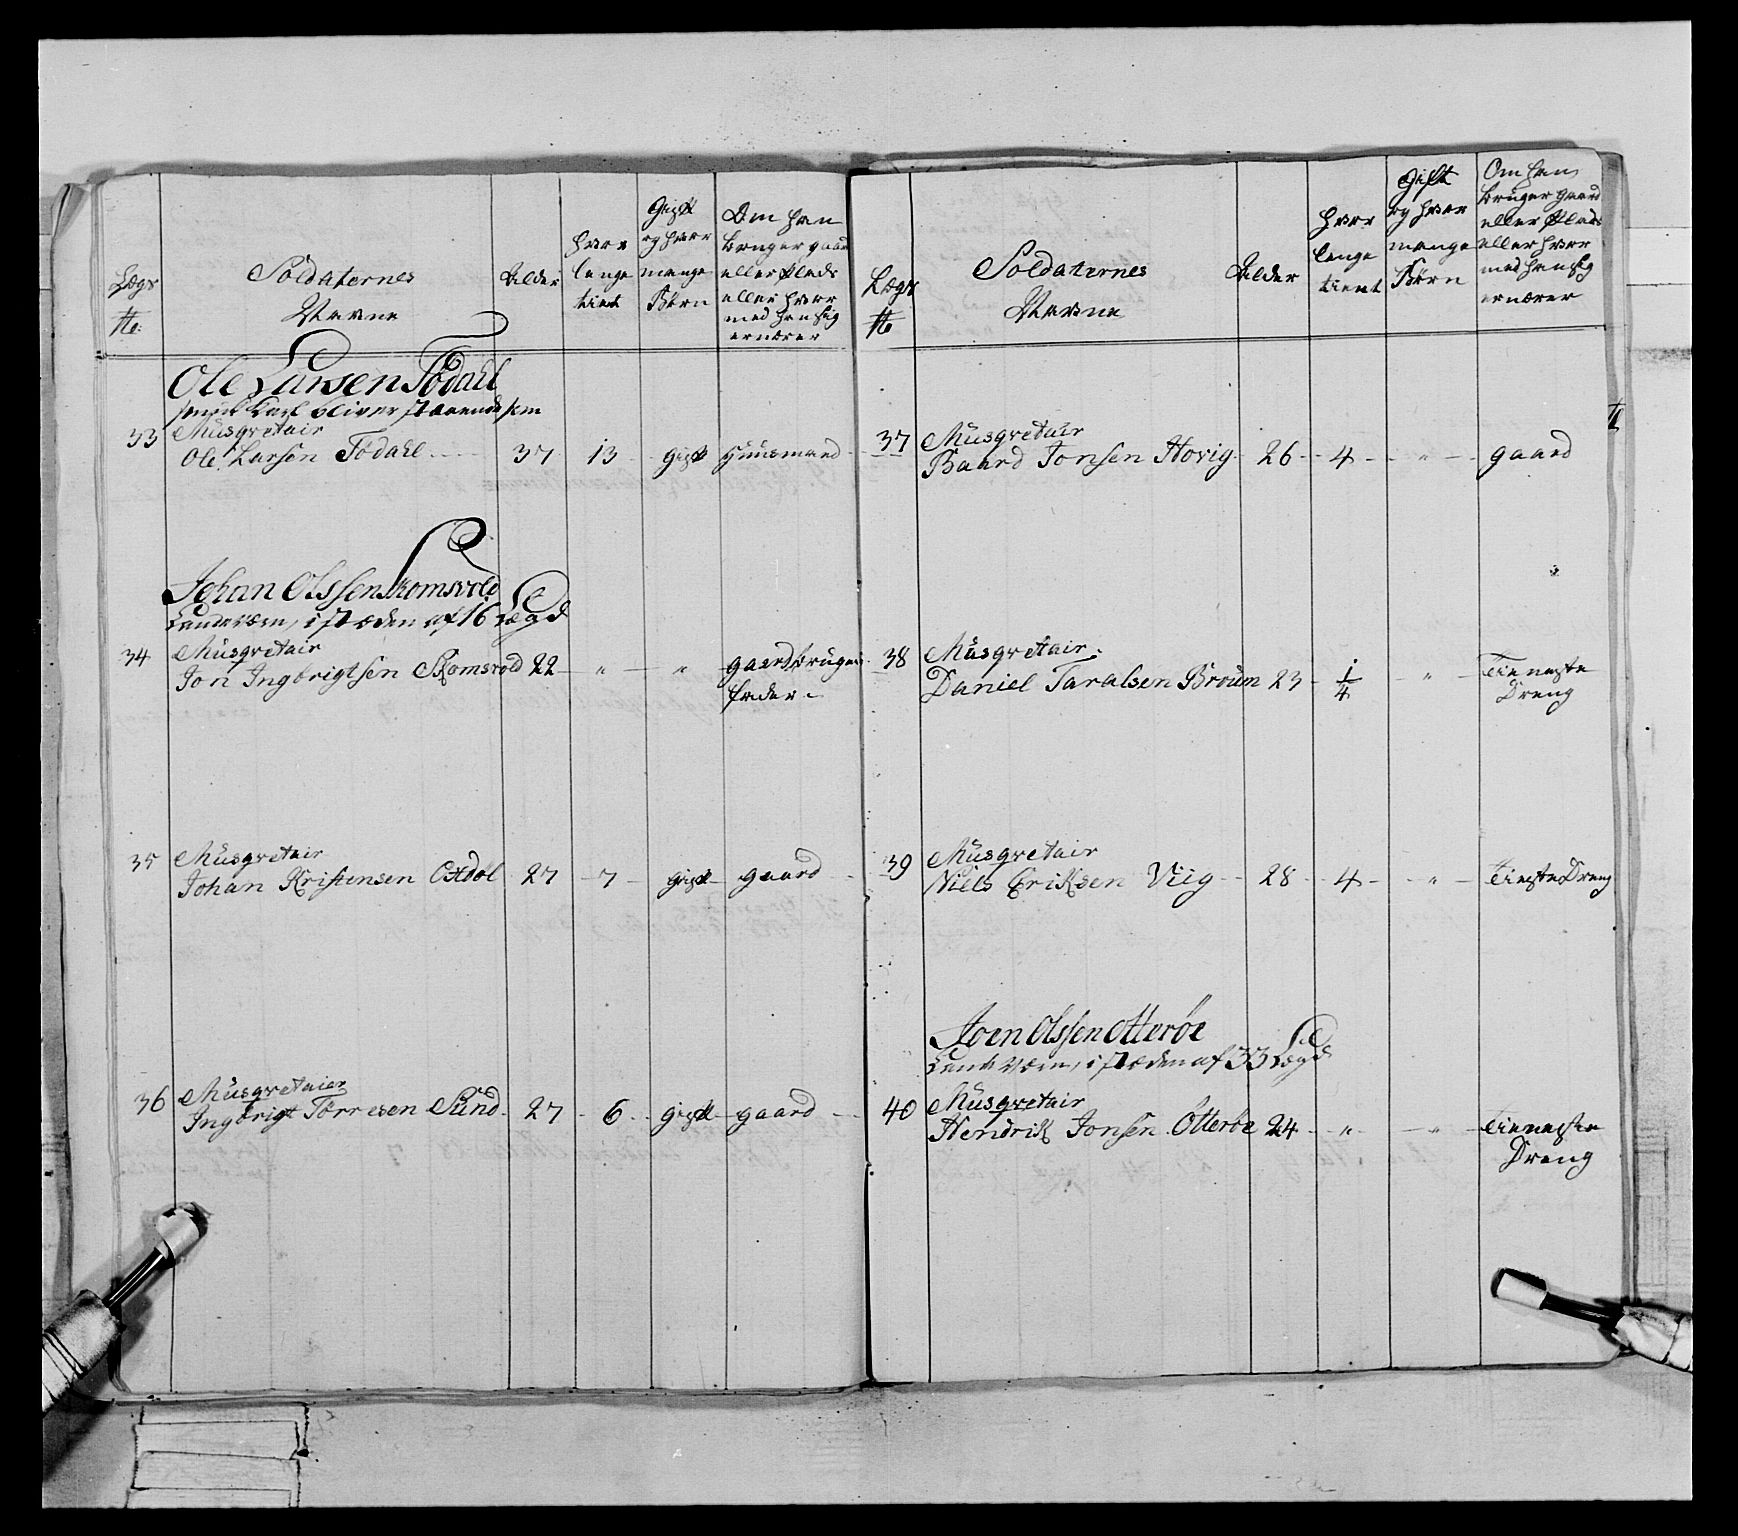 Lægs
No:
Soldaternes
Navne
Alder
hvor
lenge
tient
Gift
og hvor
mange
Børn
Om han
bruger gaard
eller Plads
eller hvor
med han sig
ernærer
Ole Larsen Tödahl
bliver staaende som
33 Musqvetair
Ole Larsen Tödahl 37 13 gift Huusmand
Johan Olssen Komsvold
Landværn, i stæden af 16 Lægd
34 Musqvetair
Jon Ingbrigtsen Komsvold 22 " " gaardbruger
fader
35 Musqvetair
Johan Kristensen Östdöl 27 7 gift gaard
36 Musqvetaier
Ingbrigt Törresen Sund 27 6 gift gaard
Lægs
No
Soldaternes
Navne
Alder
hvor
lenge
tient
Gift
og hvor
mange
Børn
Om han
bruger gaard
eller Plads
eller hvor
med han sig
ernærer
37 Musqvetair
Baard Jonsen Hovig 26 4 " gaard
38 Musqvetair
Daniel Taralsen Broum 23 1/4 " Tieneste
Dreng
39 Musqvetair
Niels Eriksen Viig 28 4 " Tieneste Dreng
Joen Olssen Otterøe
Landværn, i stæden af 33 Lægd
40 Musqvetair
Hendrik Jonsen Otterøe 24 " " tieneste
Dreng